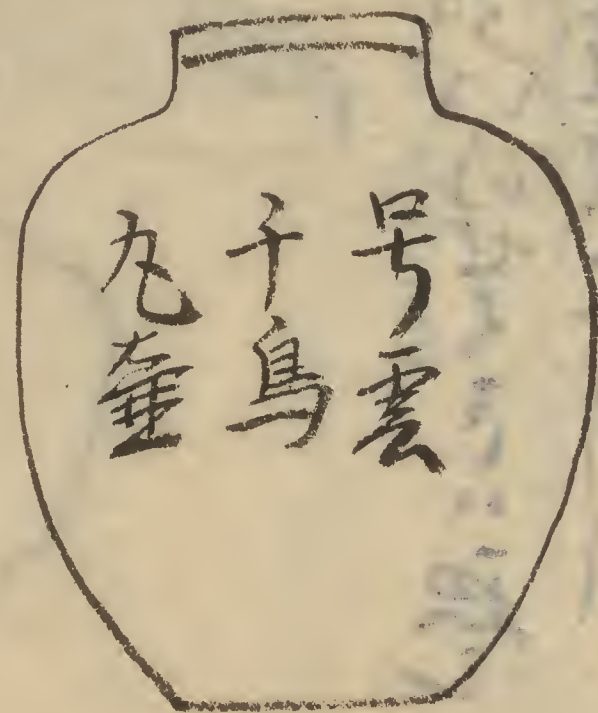 号雲
千鳥
丸壷